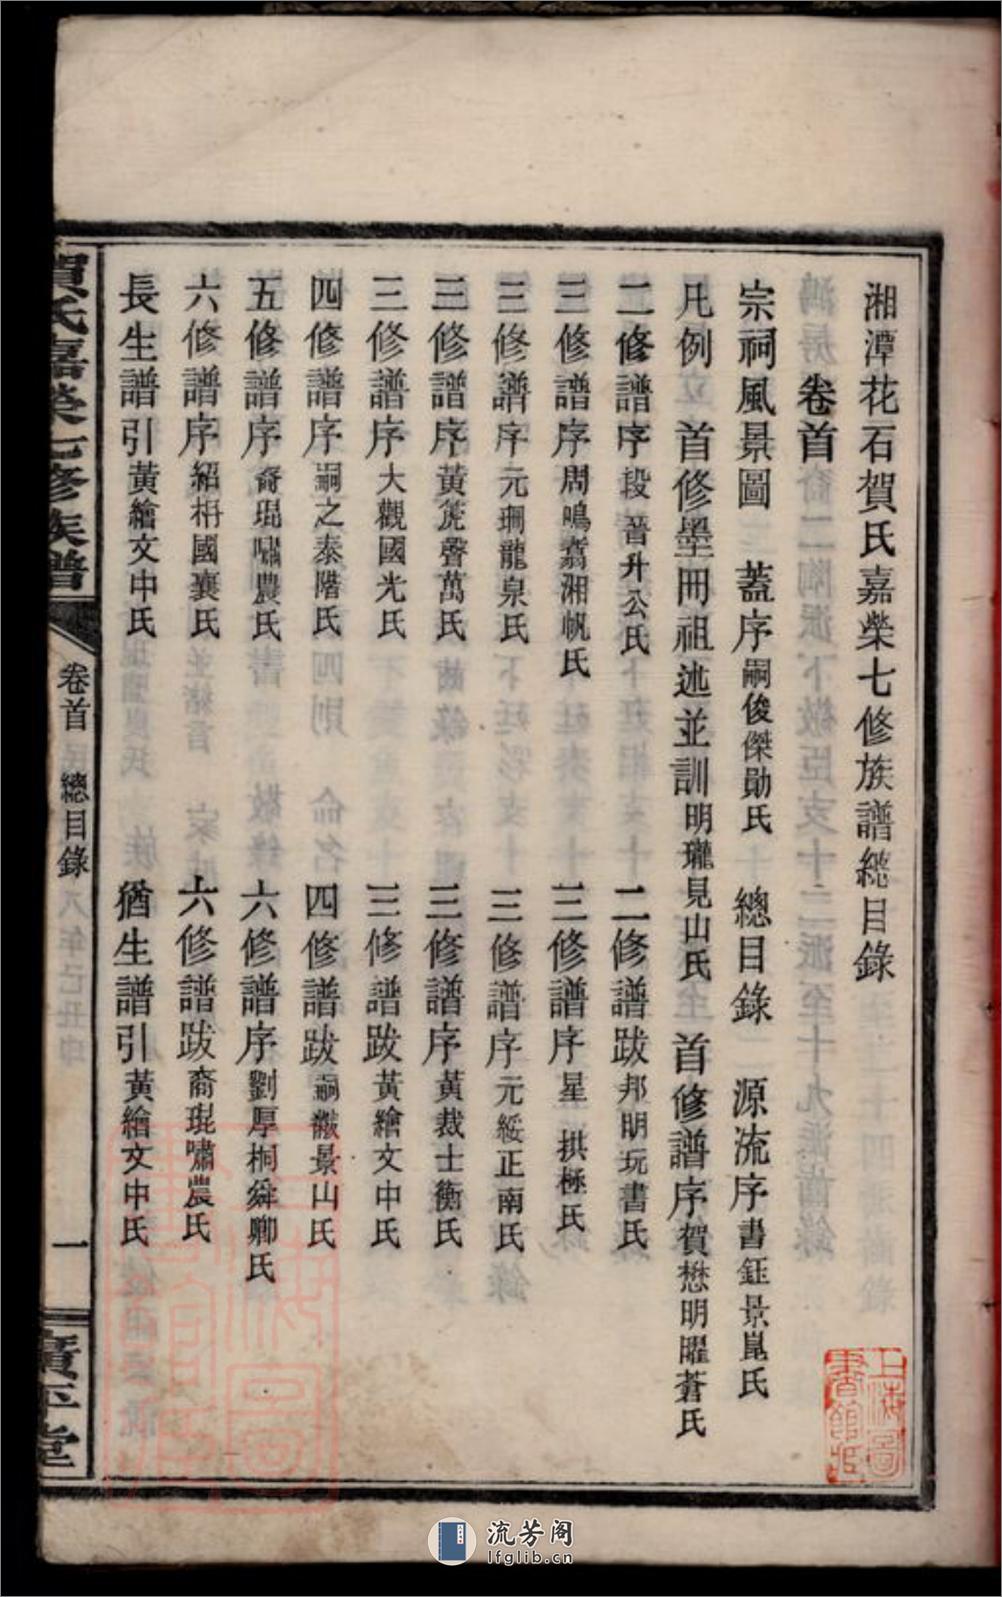 湘潭花石賀氏嘉榮七修族譜總目錄
卷首
宗祠風景圖 蓋序嗣俊傑勛氏 總目錄 源流序書鉦景崑氏
凡例 首修墨冊祖述並訓明瓏見山氏 首修譜序賀懋明曜蒼氏
二修譜序段晉升公氏 二修譜跋邦明玩書氏
三修譜序周鳴翥湘帆氏 三修譜序星拱極氏
三修譜序元珊龍泉氏 三修譜序元綏正南氏
三修譜序黃箎聲萬氏 三修譜序黃裁士衡氏
三修譜序大觀國光氏 三修譜跋黃繪文中氏
四修譜序嗣之泰階氏 四修譜跋嗣黻景山氏
五修譜序裔琨嘯農氏 六修譜序劉厚桐舜卿氏
六修譜序紹枬國襄氏 六修譜跋裔琨嘯農氏
長生譜引黃繪文中氏 猶生譜引黃繪文中氏
賀氏嘉榮七修族譜 卷首 總目錄 一 廣平堂
上海圖書館藏
流芳阁
lfglib.cn